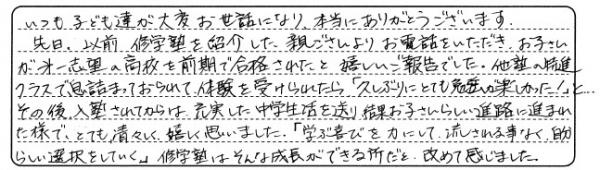 いつも子ども達が大変お世話になり、本当にありがとうございます。
先日、以前、修学塾を紹介した親ごさんよりお電話をいただき、お子さん
が才一志望の高校を前期で合格されたと嬉しいご報告でした。他塾の特進
クラスで息詰まっておられて、体験を受けられたら、「久しぶりにとても勉強が楽しかった!」と…
その後、入塾されてからは、充実した中学生活を送り結果お子さんらしい進路に進まれ
た様で、とても清々しく、嬉しく思いました。「学ぶ喜びを力にして、流される事なく、自分
らしい選択をしていく」修学塾はそんな成長ができる所だと、改めて感じました。